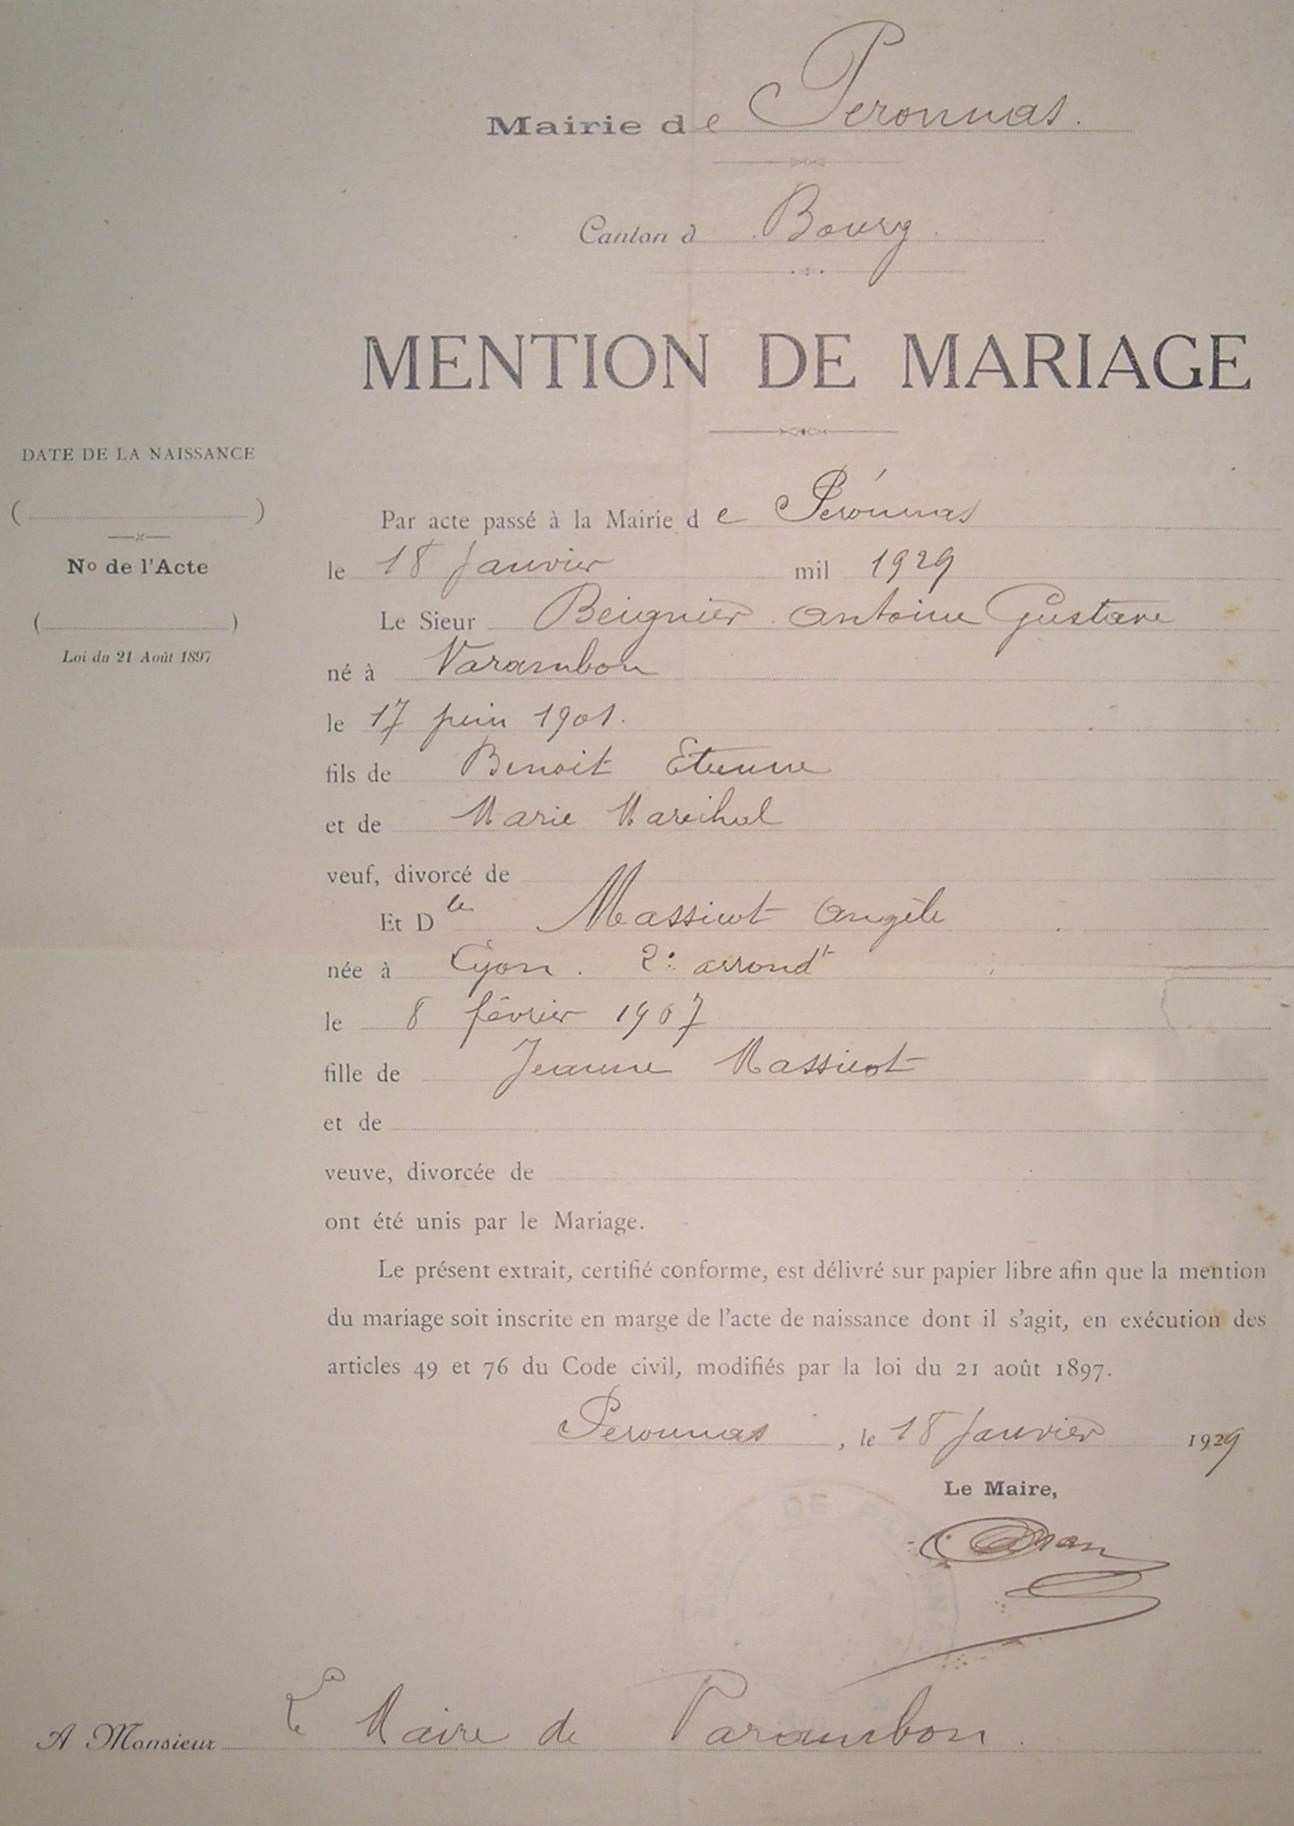 Mairie de Peronnas.
Canton d Bourg.
MENTION DE MARIAGE
DATE DE LA NAISSANCE
( )
No de l'Acte
( )
Loi du 21 Août 1897
Par acte passé à la Mairie de Péronnas
le 18 Janvier mil 1929
Le Sieur Beignier Antoine Gustave
né à Varambon
le 17 juin 1901.
fils de Benoit Etienne
et de Marie Maréchal
veuf, divorcé de
Et Dlle Massicot Angèle
née à Lyon. 2e arrondt
le 8 février 1907
fille de Jeanne Massicot
et de
veuve, divorcée de
ont été unis par le Mariage.
Le présent extrait, certifié conforme, est délivré sur papier libre afin que la mention
du mariage soit inscrite en marge de l'acte de naissance dont il s'agit, en exécution des
articles 49 et 76 du Code civil, modifiés par la loi du 21 août 1897.
Peronnas, le 18 Janvier 1929
Le Maire,
A Monsieur Le Maire de Varambon.